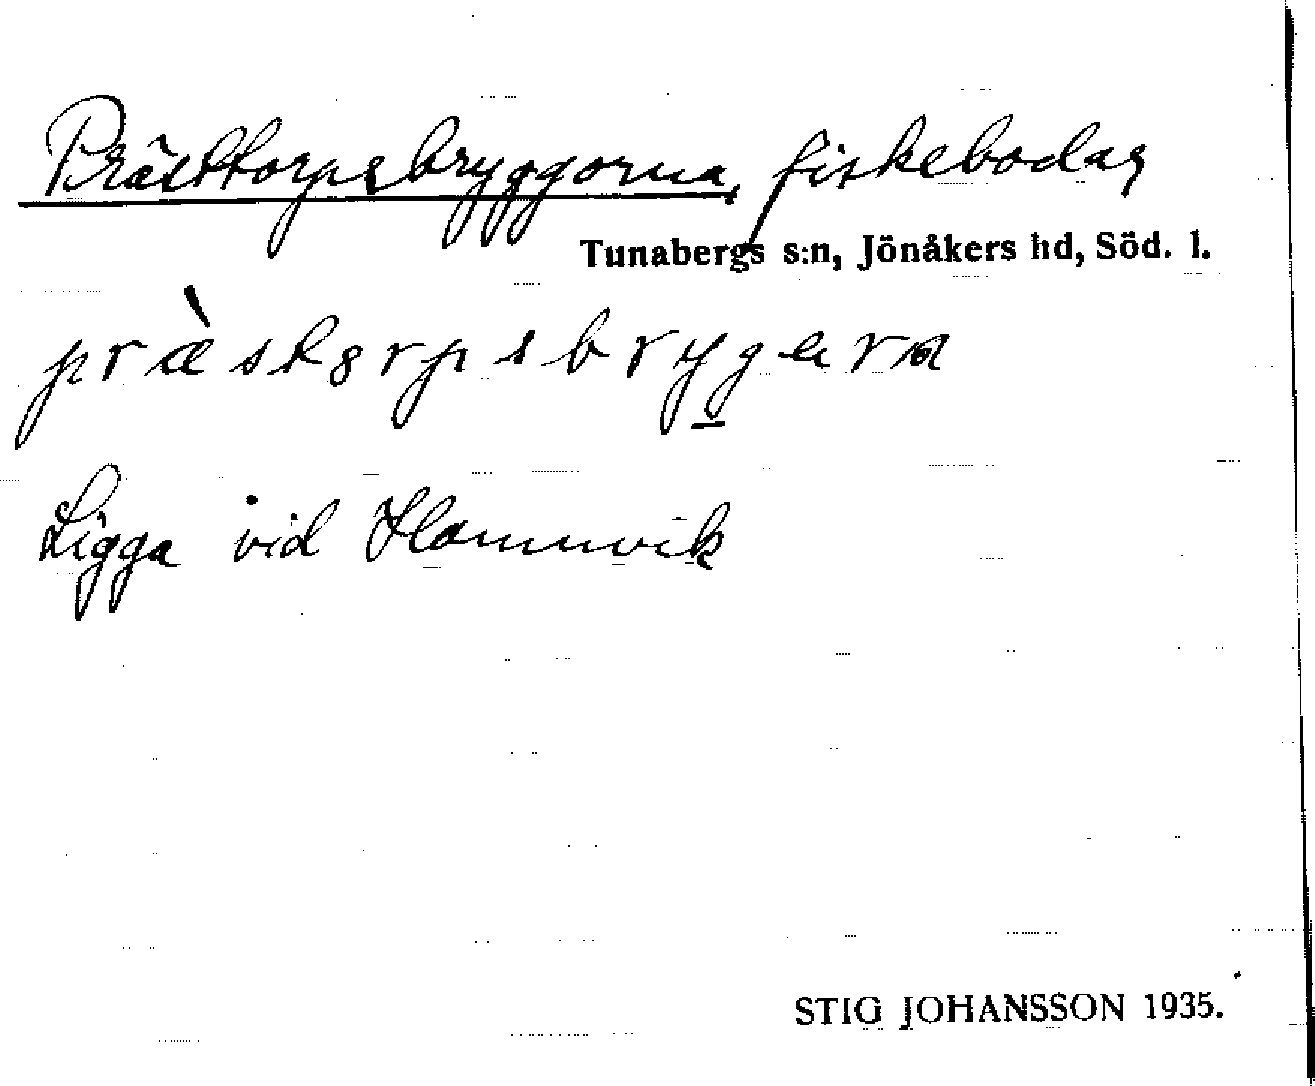 Prästtorpsbryggorna, fiskebodar
Tunabergs s:n, Jönåkers hd, Söd. l.
præ̀stɔrpsbrygɐrna
Ligga vid Hamnvik
STIG JOHANSSON 1935.